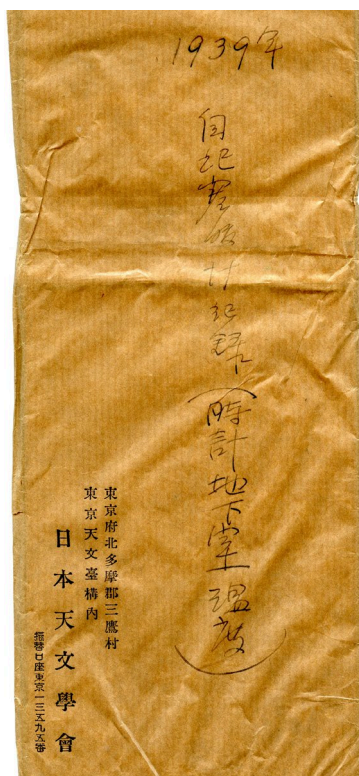 1939年
自記寒暖計記録(時計地下室温度)
東京府北多摩郡三鷹村
東京天文臺構內
日本天文學會
振替口座東京一三五九五番